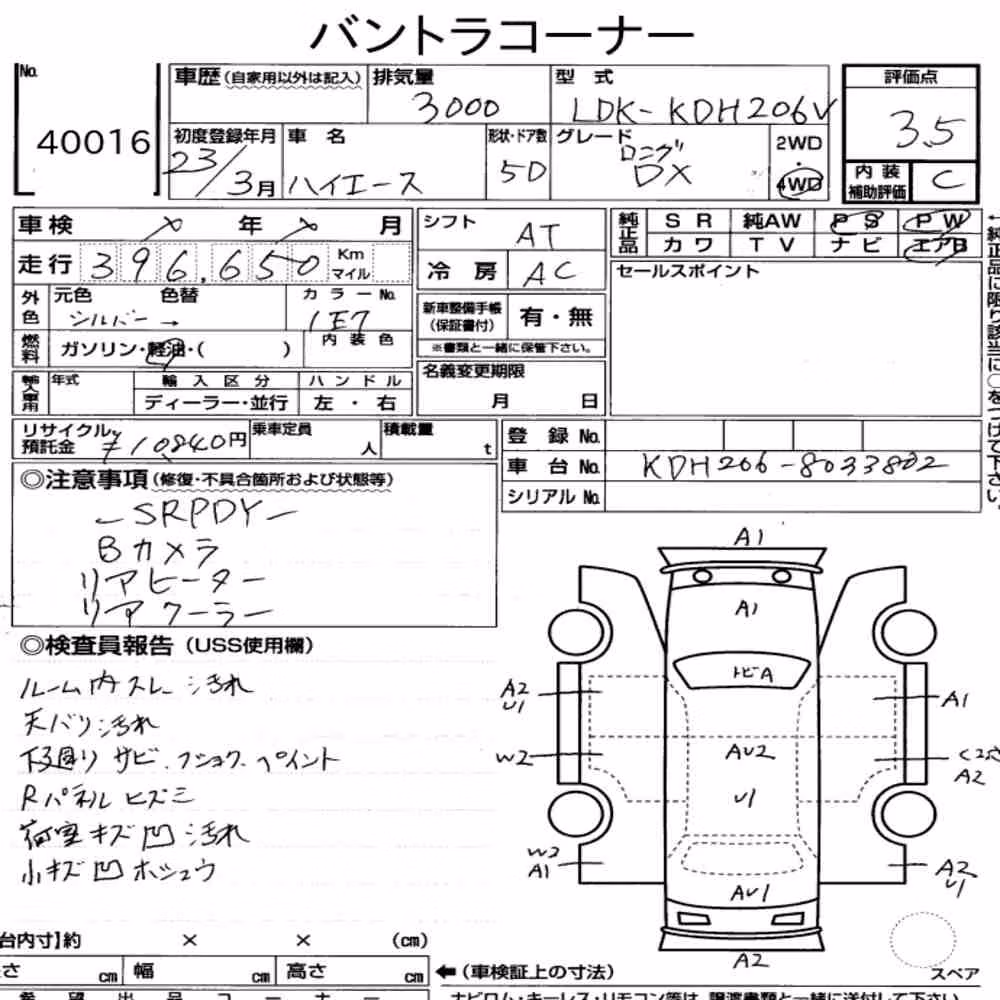 バントラコーナー
No. 40016
車歴(自家用以外は記入) 排気量 3000 型式 LDK-KDH206V
評価点 3.5
初度登録年月 23/3月 車名 ハイエース 形状・ドア数 5D グレード ロング DX 2WD・4WD
内装補助評価 C
車検 × 年 × 月
走行 396,650 Km マイル
外色 元色 シルバー → 色替 カラーNo. 1E7
燃料 ガソリン・軽油・( ) 内装色
輸入車用 年式 輸入区分 ハンドル
ディーラー・並行 左・右
リサイクル預託金 ¥10,840円 乗車定員 人 積載量 t
シフト AT
冷房 AC
新車整備手帳(保証書付) 有・無
※書類と一緒に保管下さい。
名義変更期限
月 日
純正品 SR 純AW PS PW
カワ TV ナビ エアB
セールスポイント
←純正品に限り該当に○をつけて下さい。
登録No.
車台No. KDH206-8033802
シリアルNo.
◎注意事項(修復・不具合箇所および状態等)
SRPDY
Bカメラ
リアヒーター
リアクーラー
◎検査員報告(USS使用欄)
ルーム内スレ 汚れ
天バリ汚れ
下廻り サビ フショク ペイント
Rパネル ヒズミ
荷室キズ凹 汚れ
小キズ凹 ホシュウ
A1
A1
トビA
A2 U1
A1
W2
AU2
A2
U1
W2 A1
A2 U1
AU1
A2
スペア
台内寸】約 × × (cm)
さ cm 幅 cm 高さ cm
←(車検証上の寸法)
希望出品コーナー
ナビロム・キーレス・リモコン等は、譲渡書類と一緒に送付して下さい。